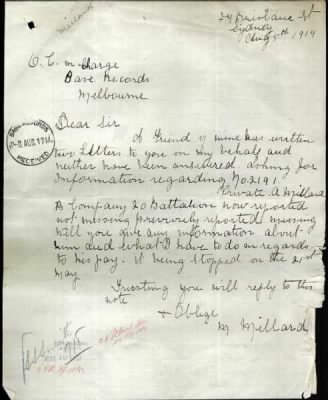 Sydney
Aug 5th 191
O. C. in Charge
Base Records
Melbourne
Dear Sir
A Friend of mine has written
two Letters to you on my behalf and
neither have been answered asking for
Information regarding No 2191
Private A Millard
B Company 20 Battalion now reported
not missing previously reported missing
will you give any information about
him and what I have to do in regards
to his pay. it being stopped on the 21st
May
Trusting you will reply to this
note
& Oblige
M Millard
RECORDS
8 AUG. 17
RECEIVED